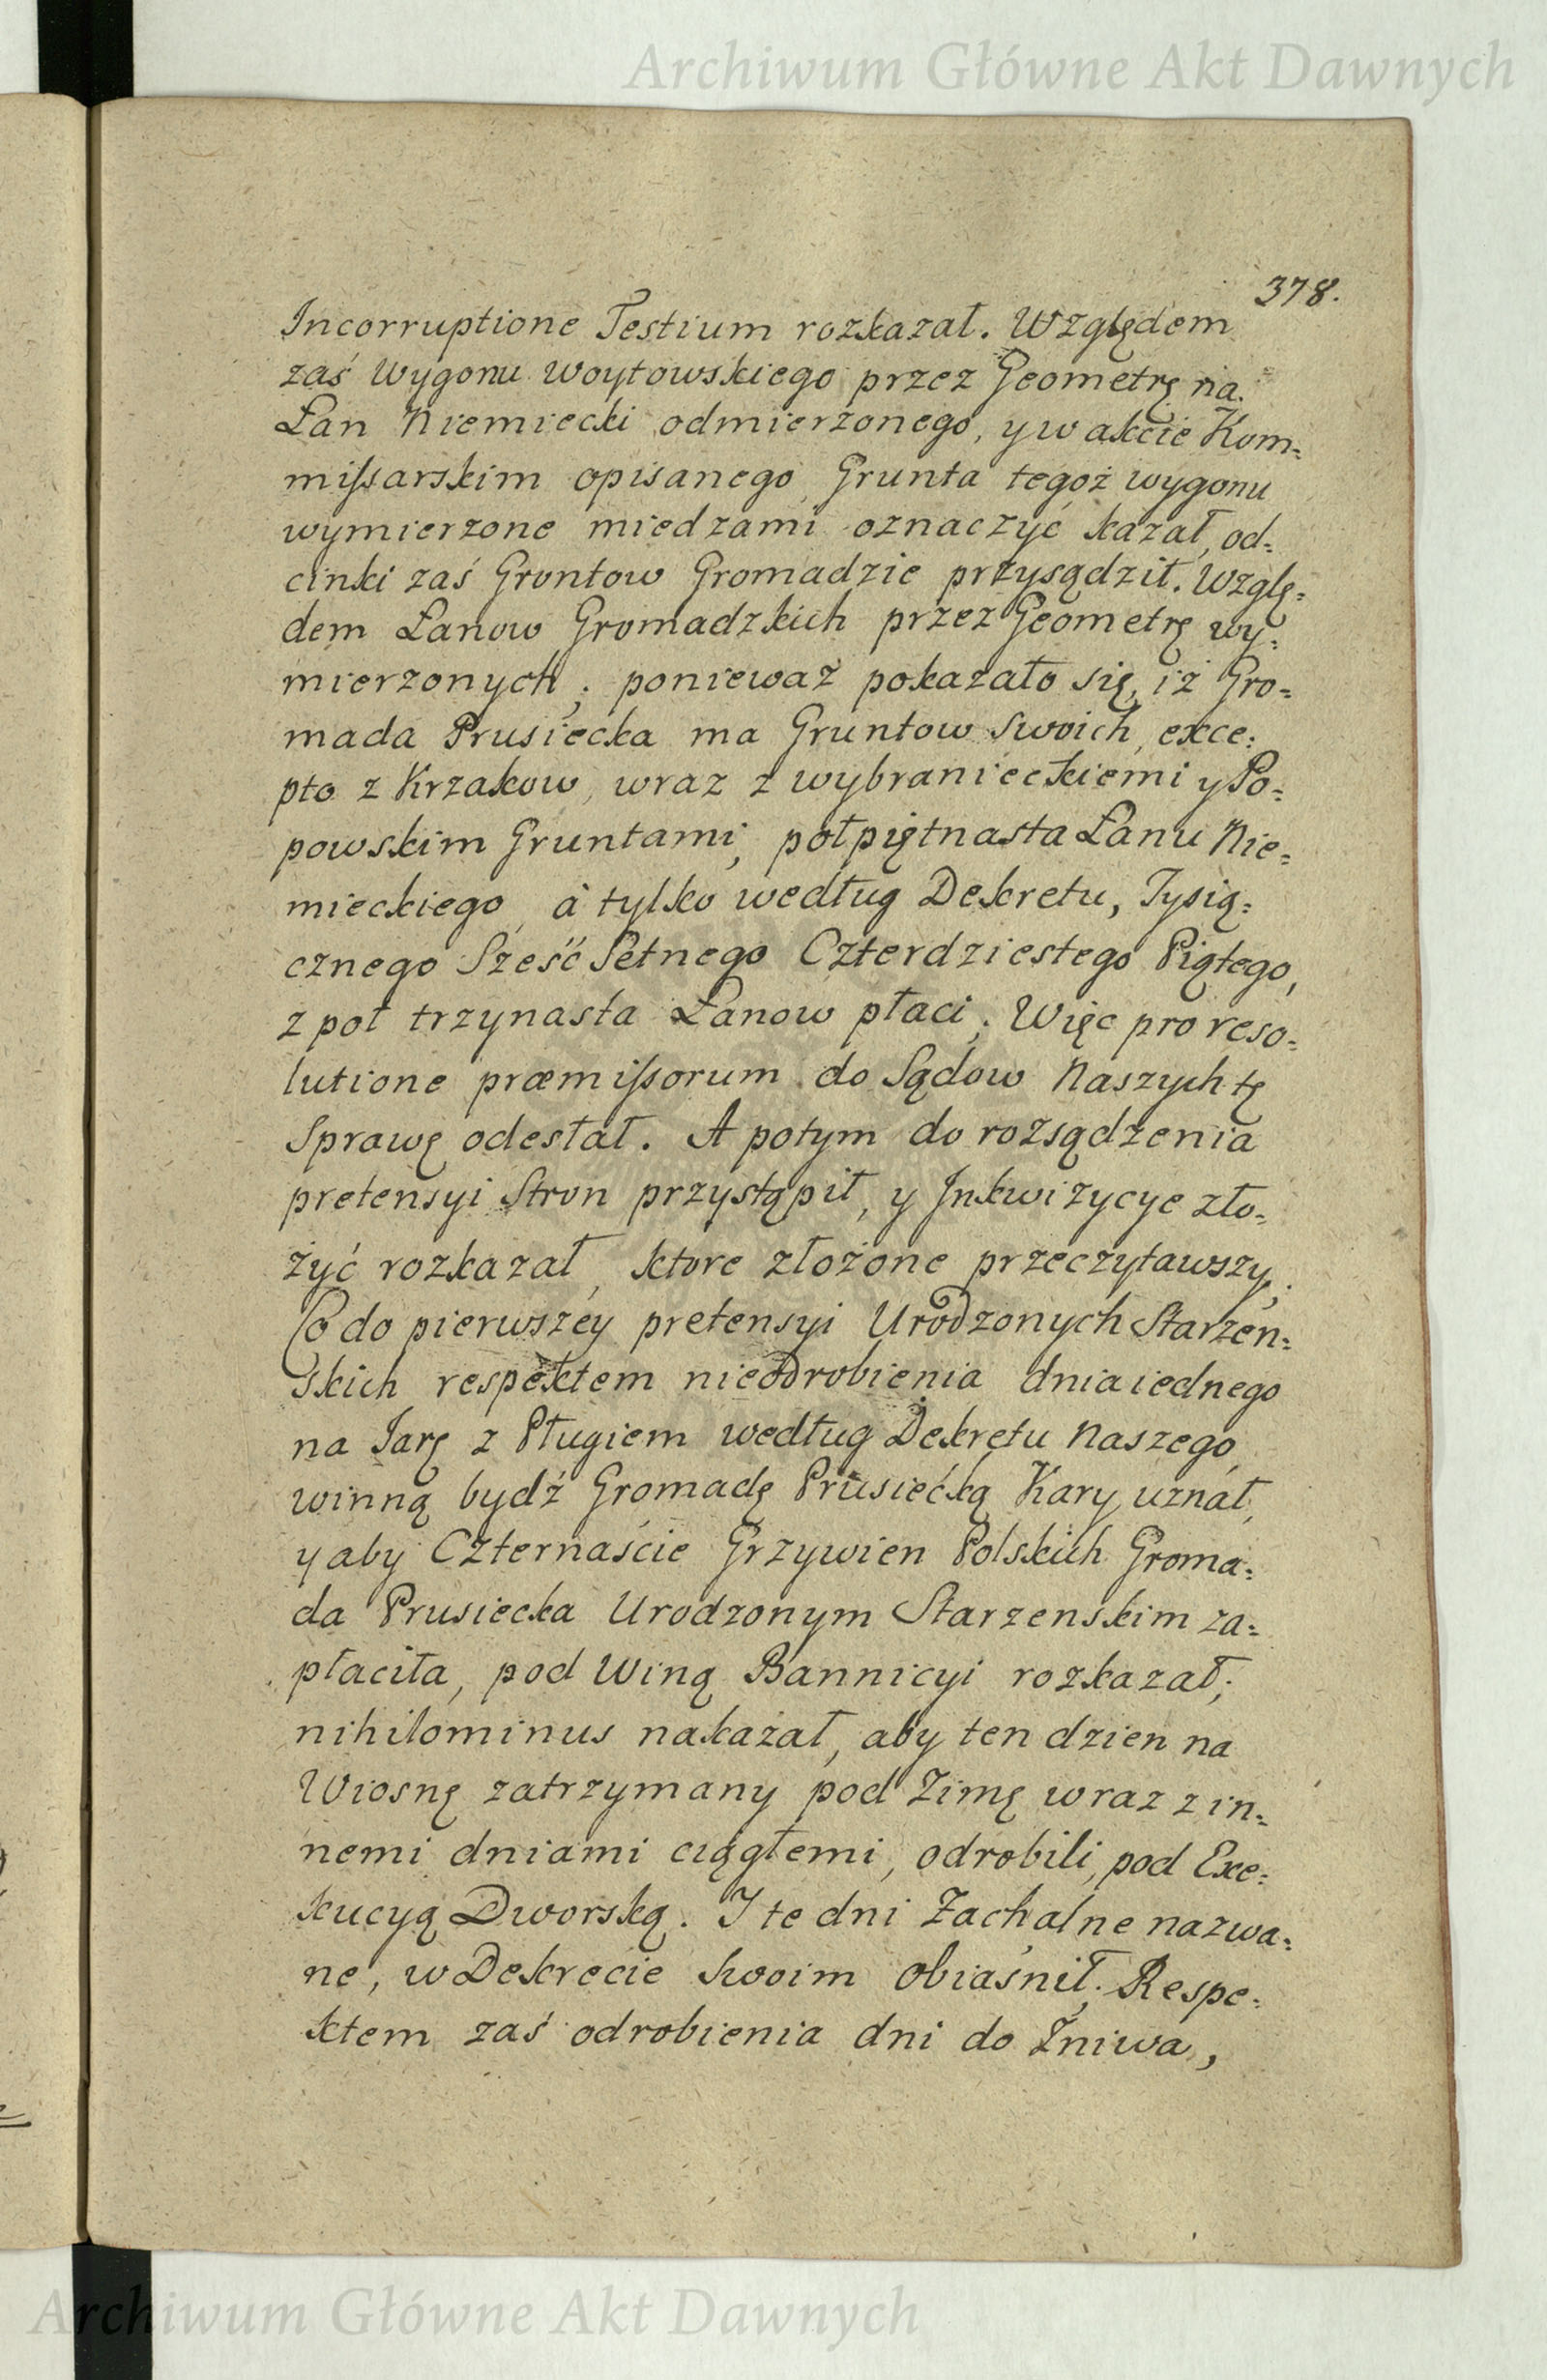 Archiwum Główne Akt Dawnych
378.
Incorruptione Testium rozkazał. Względem
zaś Wygonu Woytowskiego przez Geometrę na
Łan Niemiecki odmierzonego, y w akcie Kom=
missarskim opisanego, Grunta tegoż wygonu
wymierzone miedzami oznaczyć kazał, od=
cinki zaś Grontow Gromadzie przysądził. Wzglę=
dem Łanow Gromadzkich przez Geometrę wy=
mierzonych; ponieważ pokazało się, iż Gro=
mada Prusiecka ma Gruntow swoich, exce=
pto z Krzakow, wraz z wybranieckiemi y Po=
powskim Gruntami, połpiętnasta Łanu Nie=
mieckiego, à tylko według Dekretu, Tysią=
cznego Sześć Setnego Czterdziestego Piątego,
z poł trzynasta Łanow płaci; Więc pro reso=
lutione præmissorum do Sądow Naszych tę
Sprawę odesłał. A potym do rozsądzenia
pretensyi Stron przystąpił, y Inkwizycye zło=
żyć rozkazał, ktore złożone przeczytawszy;
Co do pierwszey pretensyi Urodzonych Starzen=
skich respektem nieodrobienia dnia iednego
na Jarę z Pługiem według Dekretu Naszego,
winną bydź Gromadę Prusiecką Kary uznał,
y aby Czternaście Grzywien Polskich Groma=
da Prusiecka Urodzonym Starzenskim za=
płaciła, pod Winą Bannicyi rozkazał;
nihilominus nakazał, aby ten dzien na
Wiosnę zatrzymany pod Zimę wraz z in=
nemi dniami ciągłemi, odrobili, pod Exe=
kucyą Dworską. I te dni Zachalne nazwa=
ne, w Dekrecie swoim obiaśnił. Respe=
ktem zaś odrobienia dni do Żniwa,
Archiwum Główne Akt Dawnych